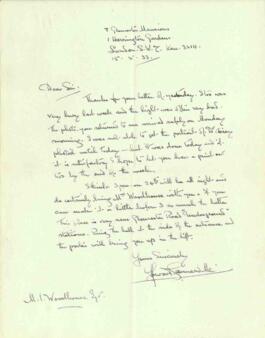 7 Mansions
Harrington Gardens
London S.W.7.
Dear Sir,
Thanks for your letter of yesterday. I too was
very busy last week and the light was often very bad.
The photo you returned to me arrived safely on Monday
morning. I was not able to get the portrait of
today — but it was done today and if
it is satisfactory I hope to let you have a print or
two by the end of the week.
I think 3 p.m. on 26th will be all right and
do certainly bring Mrs Woodhouse with you if you
can make it a little before 3 so much the better
This place is very near Gloucester Road Underground
station. Ring the bell at the side of the entrance and
the porter will bring you up in the lift.
Yours Sincerely
M. I. Woodhouse Esq.